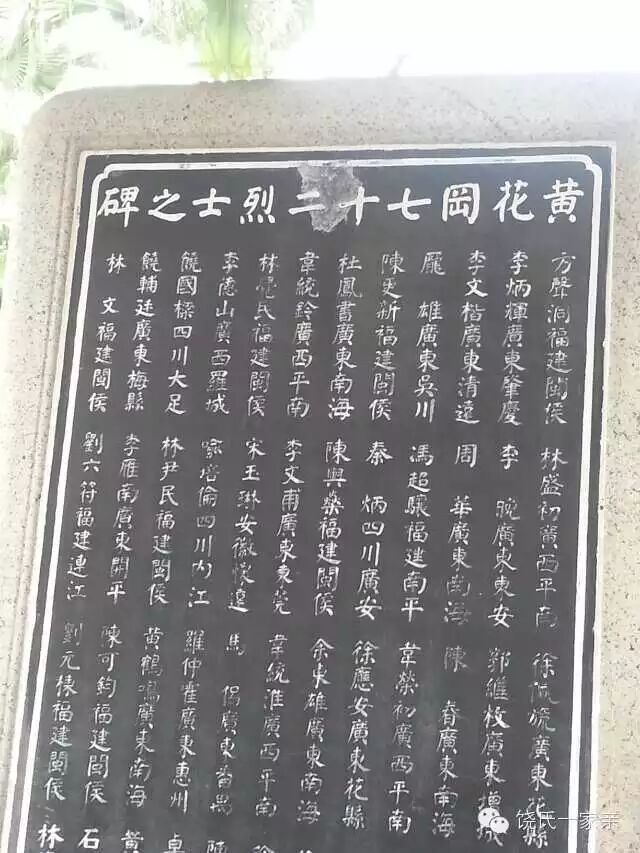 黃花岡七十二烈士之碑
方聲洞福建閩侯
李炳輝廣東肇慶
李文楷廣東清遠
龐 雄廣東吳川
陳更新福建閩侯
杜鳳書廣東南海
韋統鈴廣西平南
林覺民福建閩侯
李德山廣西羅城
饒國樑四川大足
饒輔廷廣東梅縣
林 文福建閩侯
林盛初廣西平南
李 晚廣東東安
周 華廣東南海
馮超驤福建南平
秦 炳四川廣安
陳與燊福建閩侯
李文甫廣東東莞
宋玉琳安徽懷遠
喻培倫四川內江
林尹民福建閩侯
李雁南廣東開平
劉六符福建連江
徐佩旒廣東花縣
郭維枚廣東增城
陳 春廣東南海
韋榮初廣西平南
徐應安廣東花縣
余東雄廣東南海
韋統淮廣西平南
馬 侶廣東番禺
羅仲霍廣東惠州
黃鶴鳴廣東南海
陳可鈞福建閩侯
劉元棟福建閩侯
卓
黃
石
林
饶氏一家亲